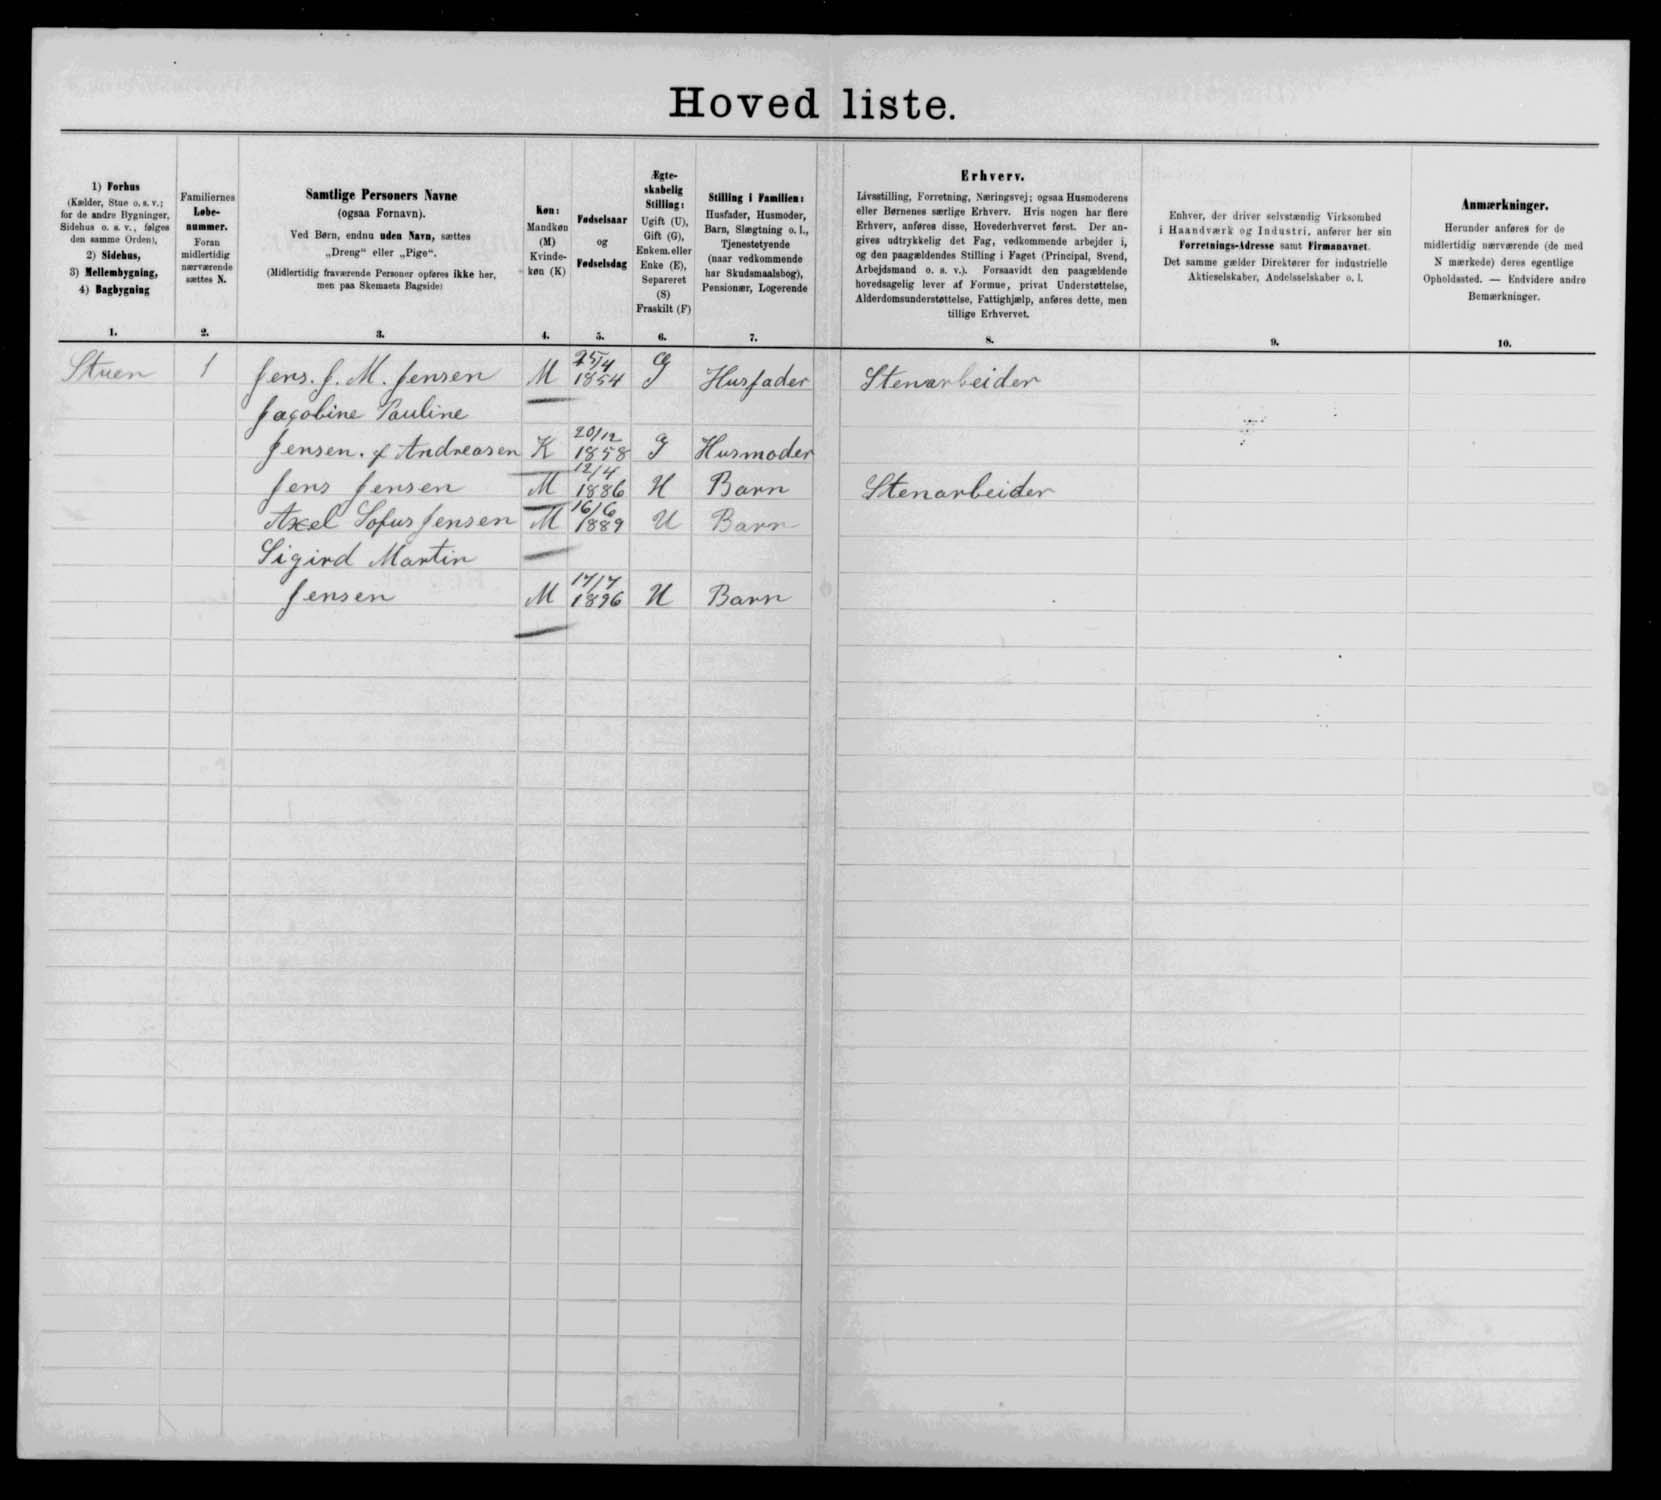 Hoved liste.
1) Forhus
(Kælder, Stue o. s. v.;
for de andre Bygninger,
Sidehus o. s. v., følges
den samme Orden),
2) Sidehus,
3) Mellembygning,
4) Bagbygning
1.
Familiernes
Løbe-
nummer.
Foran
midlertidig
nærværende
sættes N.
2.
Samtlige Personers Navne
(ogsaa Fornavn).
Ved Børn, endnu uden Navn, sættes
„Dreng“ eller „Pige“.
(Midlertidig fraværende Personer opføres ikke her,
men paa Skemaets Bagside)
3.
Køn:
Mandkøn
(M)
Kvinde-
køn (K)
4.
Fødselsaar
og
Fødselsdag
5.
Ægte-
skabelig
Stilling:
Ugift (U),
Gift (G),
Enkem. eller
Enke (E),
Separeret
(S)
Fraskilt (F)
6.
Stilling i Familien:
Husfader, Husmoder,
Barn, Slægtning o. l.,
Tjenestetyende
(naar vedkommende
har Skudsmaalsbog),
Pensionær, Logerende
7.
Erhverv.
Livsstilling, Forretning, Næringsvej; ogsaa Husmoderens
eller Børnenes særlige Erhverv. Hvis nogen har flere
Erhverv, anføres disse, Hovederhvervet først. Der an-
gives udtrykkelig det Fag, vedkommende arbejder i,
og den paagældendes Stilling i Faget (Principal, Svend,
Arbejdsmand o. s. v.). Forsaavidt den paagældende
hovedsagelig lever af Formue, privat Understøttelse,
Alderdomsunderstøttelse, Fattighjælp, anføres dette, men
tillige Erhvervet.
8.
Enhver, der driver selvstændig Virksomhed
i Haandværk og Industri, anfører her sin
Forretnings-Adresse samt Firmanavnet.
Det samme gælder Direktører for industrielle
Aktieselskaber, Andelsselskaber o. l.
9.
Anmærkninger.
Herunder anføres for de
midlertidig nærværende (de med
N mærkede) deres egentlige
Opholdssted. — Endvidere andre
Bemærkninger.
10.
Stuen 1 Jens. J. M. Jensen M 25/4 1854 G Husfader Stenarbeider
Jacobine Pauline
Jensen. f Andreasen K 20/12 1858 G Husmoder
Jens Jensen M 12/4 1886 U Barn Stenarbeider
Axel Sofus Jensen M 16/6 1889 U Barn
Sigird Martin
Jensen M 17/7 1896 U Barn